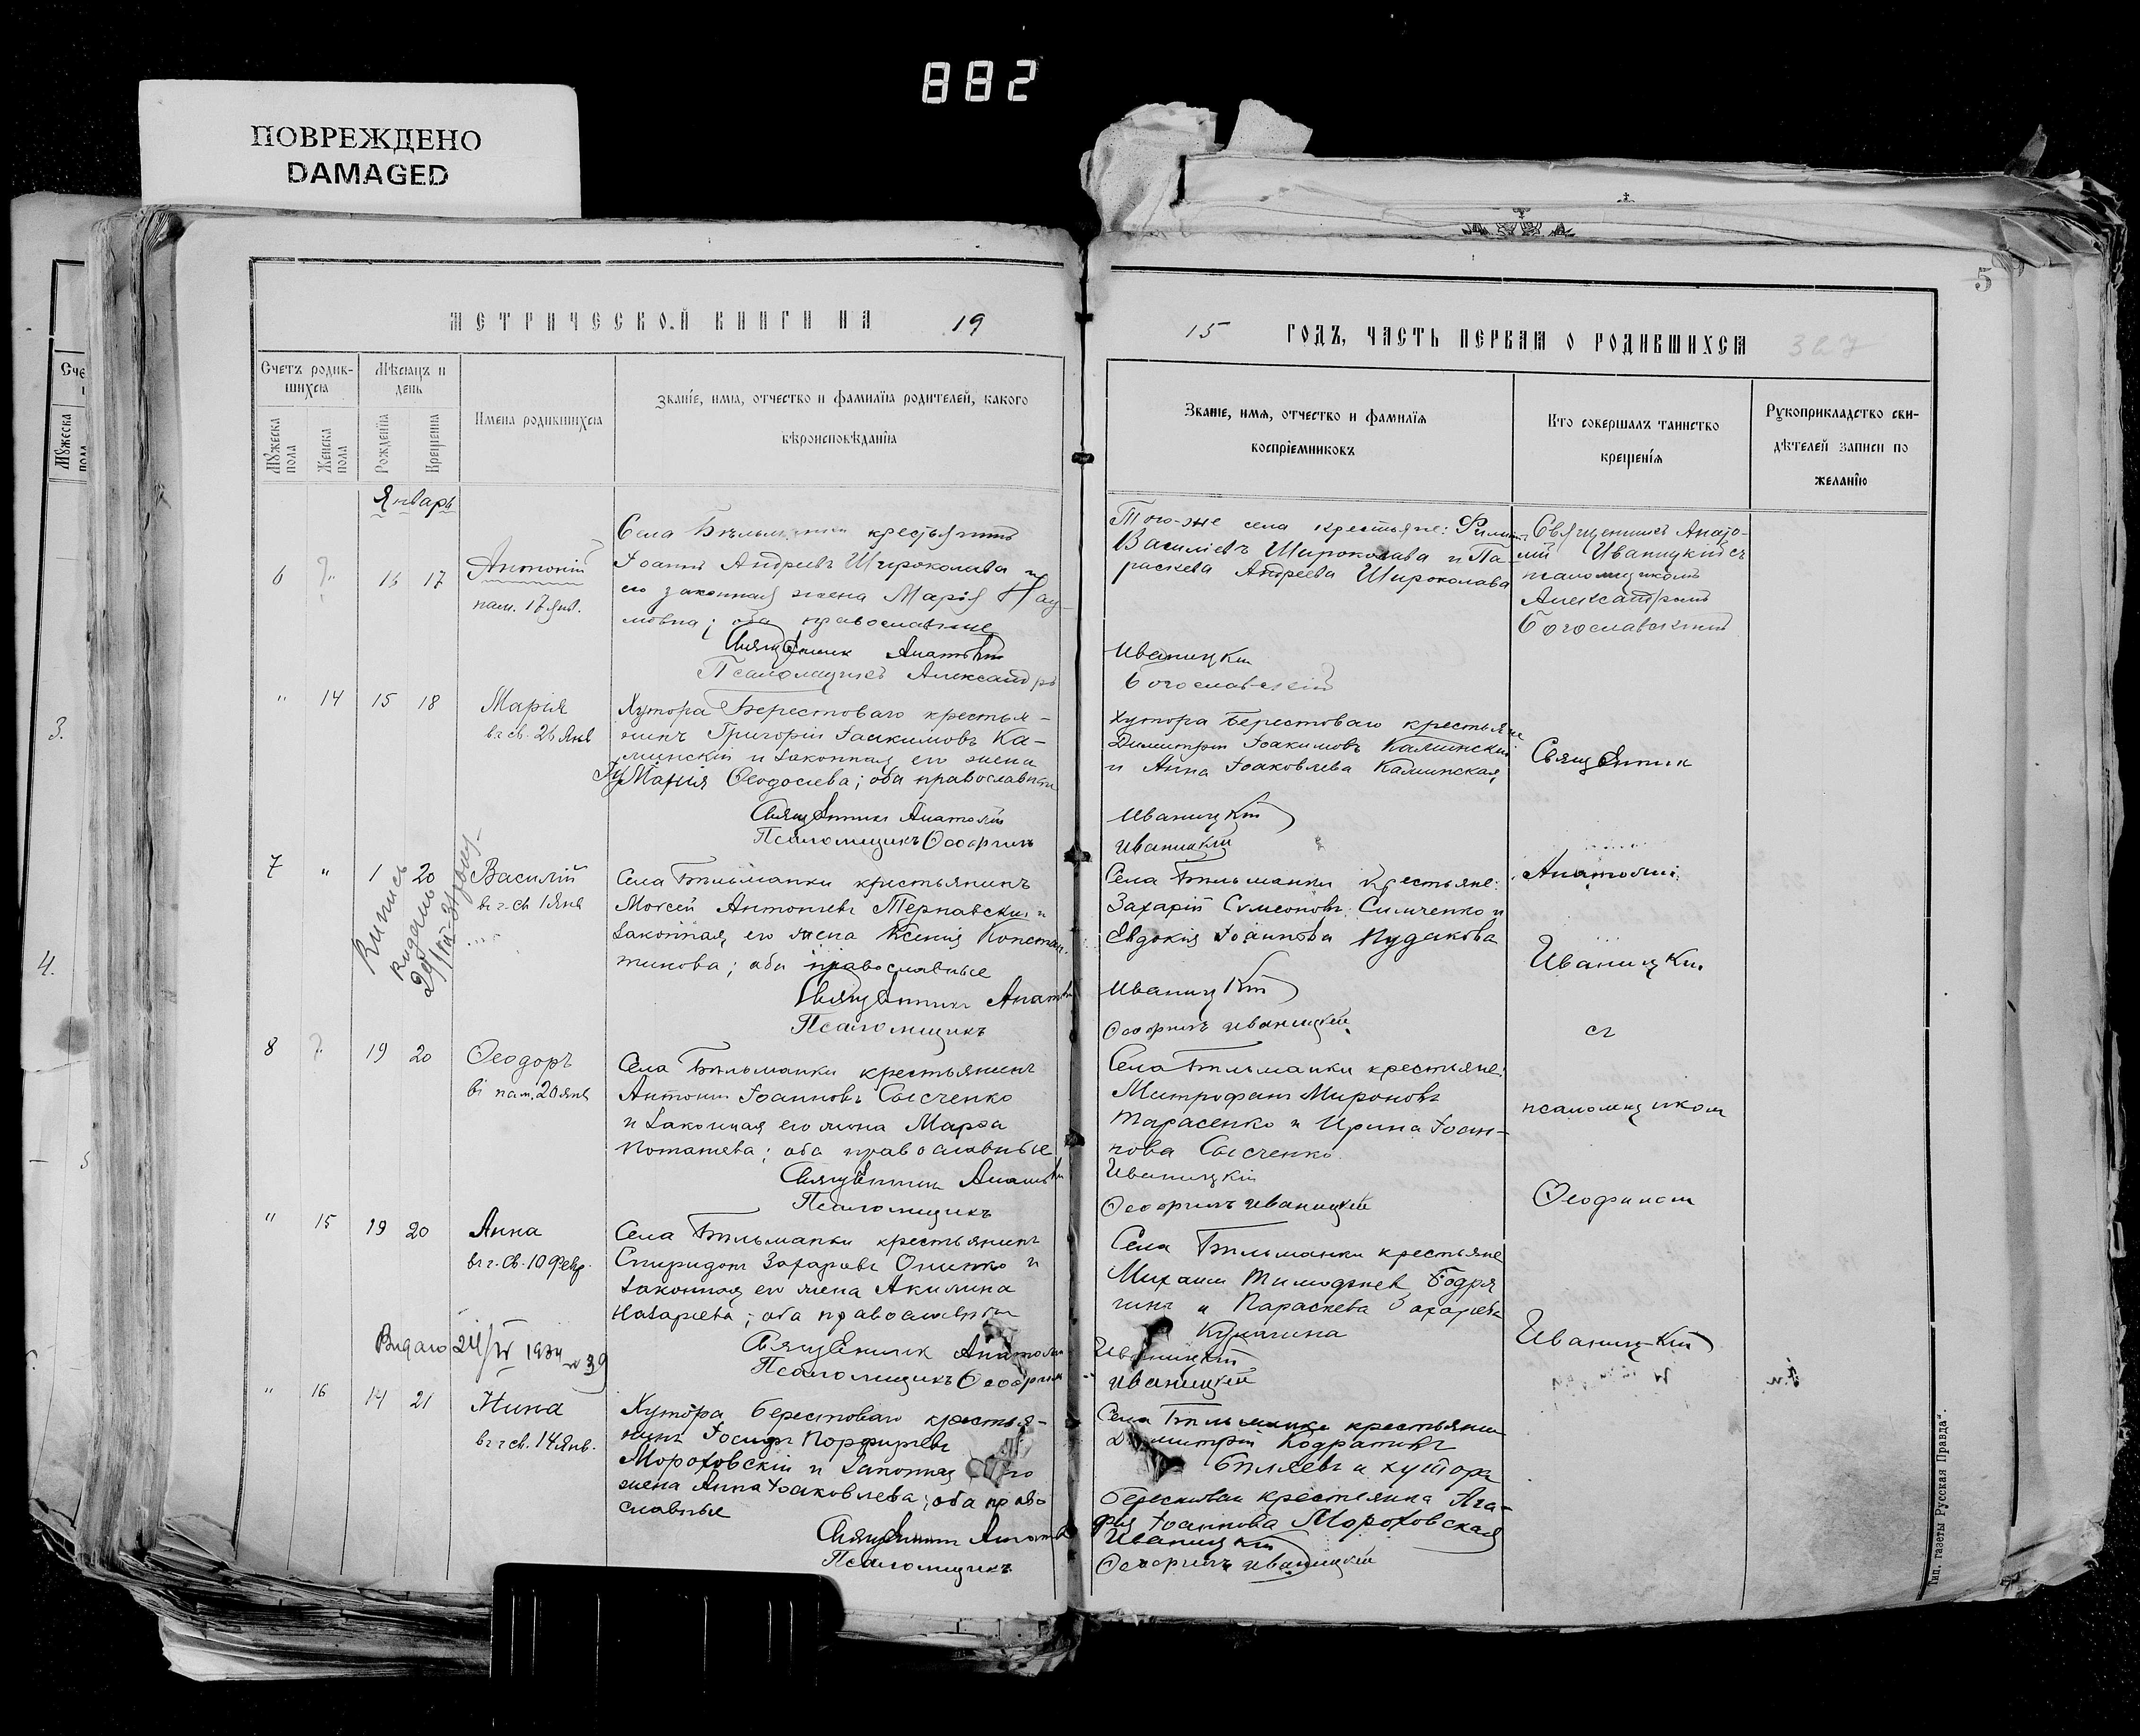 882
ПОВРЕЖДЕНО
DAMAGED
5
МЕТРИЧЕСКОЙ КНИГИ НА 19
15 ГОДЪ, ЧАСТЬ ПЕРВАЯ О РОДИВШИХСЯ
Счетъ родив-
шихся
Мѣсяцъ и
день
Имена родившихся
Званіе, имя, отчество и фамилія родителей, какого
вѣроисповѣданія
Мужеска пола
Женска пола
Рожденія
Крещенія
Званіе, имя, отчество и фамилія
воспріемниковъ
Кто совершалъ таинство
крещенія
Рукоприкладство сви-
дѣтелей записи по
желанію
Январь
6 16 17 Антоній
пам. 17 янв.
Села крестьянинъ
Іоаннъ Андреевъ Широколава и
его законная жена Марія Нау-
мовна; оба православные
Священник Анатолій
Псаломщикъ Александръ
Того-же села крестьяне:
Василіевъ Широколава и Па-
раскева Андреева Широколава
Иваницкій
Богославскій
Священникъ Анато-
лій Иваницкій съ
псаломщикомъ
Александромъ
Богославскимъ
" 14 15 18 Марія
въ св. 26 Янв
Хутора Берестоваго крестья-
нинъ Григорій Іоакимовъ Ка-
минскій и законная его жена
Марія Ѳеодосіева; оба православные
Священникъ Анатолій
Псаломщикъ Ѳеофилъ
Хутора Берестоваго крестьяне
Димитрій Іоакимовъ Каминскій
и Анна Іоаковлева Каминская
Иваницкій
Иваницкій
Священник
7 " 1 20 Василій
въ ч. св 1 Янв
Випись
видано
Села Бѣльманки крестьянинъ
Моѵсей Антоніевъ Тернавскій и
законная его жена Ксенія Констан-
тинова; оба православные
Священникъ Анатолій
Псаломщикъ
Села Бѣльманки крестьяне:
Захарій Сѵмеоновъ Симченко и
Евдокія Іоаннова Кудакова
Иваницкій
Ѳеофилъ Иваницкій
Анатолій
Иваницкій
съ
8 19 20 Ѳеодоръ
въ пам. 20 янв
Села Бѣльманки крестьянинъ
Антоній Іоанновъ Сысченко
и законная его жена Марѳа
Потапіева; оба православные
Священник Анатолій
Псаломщикъ
Села Бѣльманки крестьяне:
Митрофанъ Мироновъ
Тарасенко и Ирина Іоан-
нова Сысченко
Иваницкій
Ѳеофилъ Иваницкій
псаломщиком
Ѳеофилом
" 15 19 20 Анна
въ ч. св. 10 Февр.
Села Бѣльманки крестьянинъ
Спиридонъ Захаріевъ Онипко и
законная его жена Акилина
Назаріева; оба православные
Видано 1934 39
Священник Анатолій
Псаломщикъ Ѳеофилъ
Села Бѣльманки крестьяне
Михаилъ Тимоѳеевъ Бодря
гинъ и Параскева Захаріева
Кулагина
Иваницкій
Иваницкій
Иваницкій
" 16 14 21 Нина
въ ч св. 14 Янв.
Хутора Берестоваго крестья-
нинъ Іосифъ Порфиріевъ
Мороховскій и законная его
жена Анна Іоаковлева; оба право
славные
Священник Анатолій
Псаломщикъ
Села Бѣльманки крестьянин
Димитрій Кодратіевъ
Бѣляевъ и хутора
Берестоваго крестьянка Ага-
фія Іоаннова Мороховская
Иваницкій
Ѳеофилъ Иваницкій
Тип. газеты "Русская Правда".
3.
4.